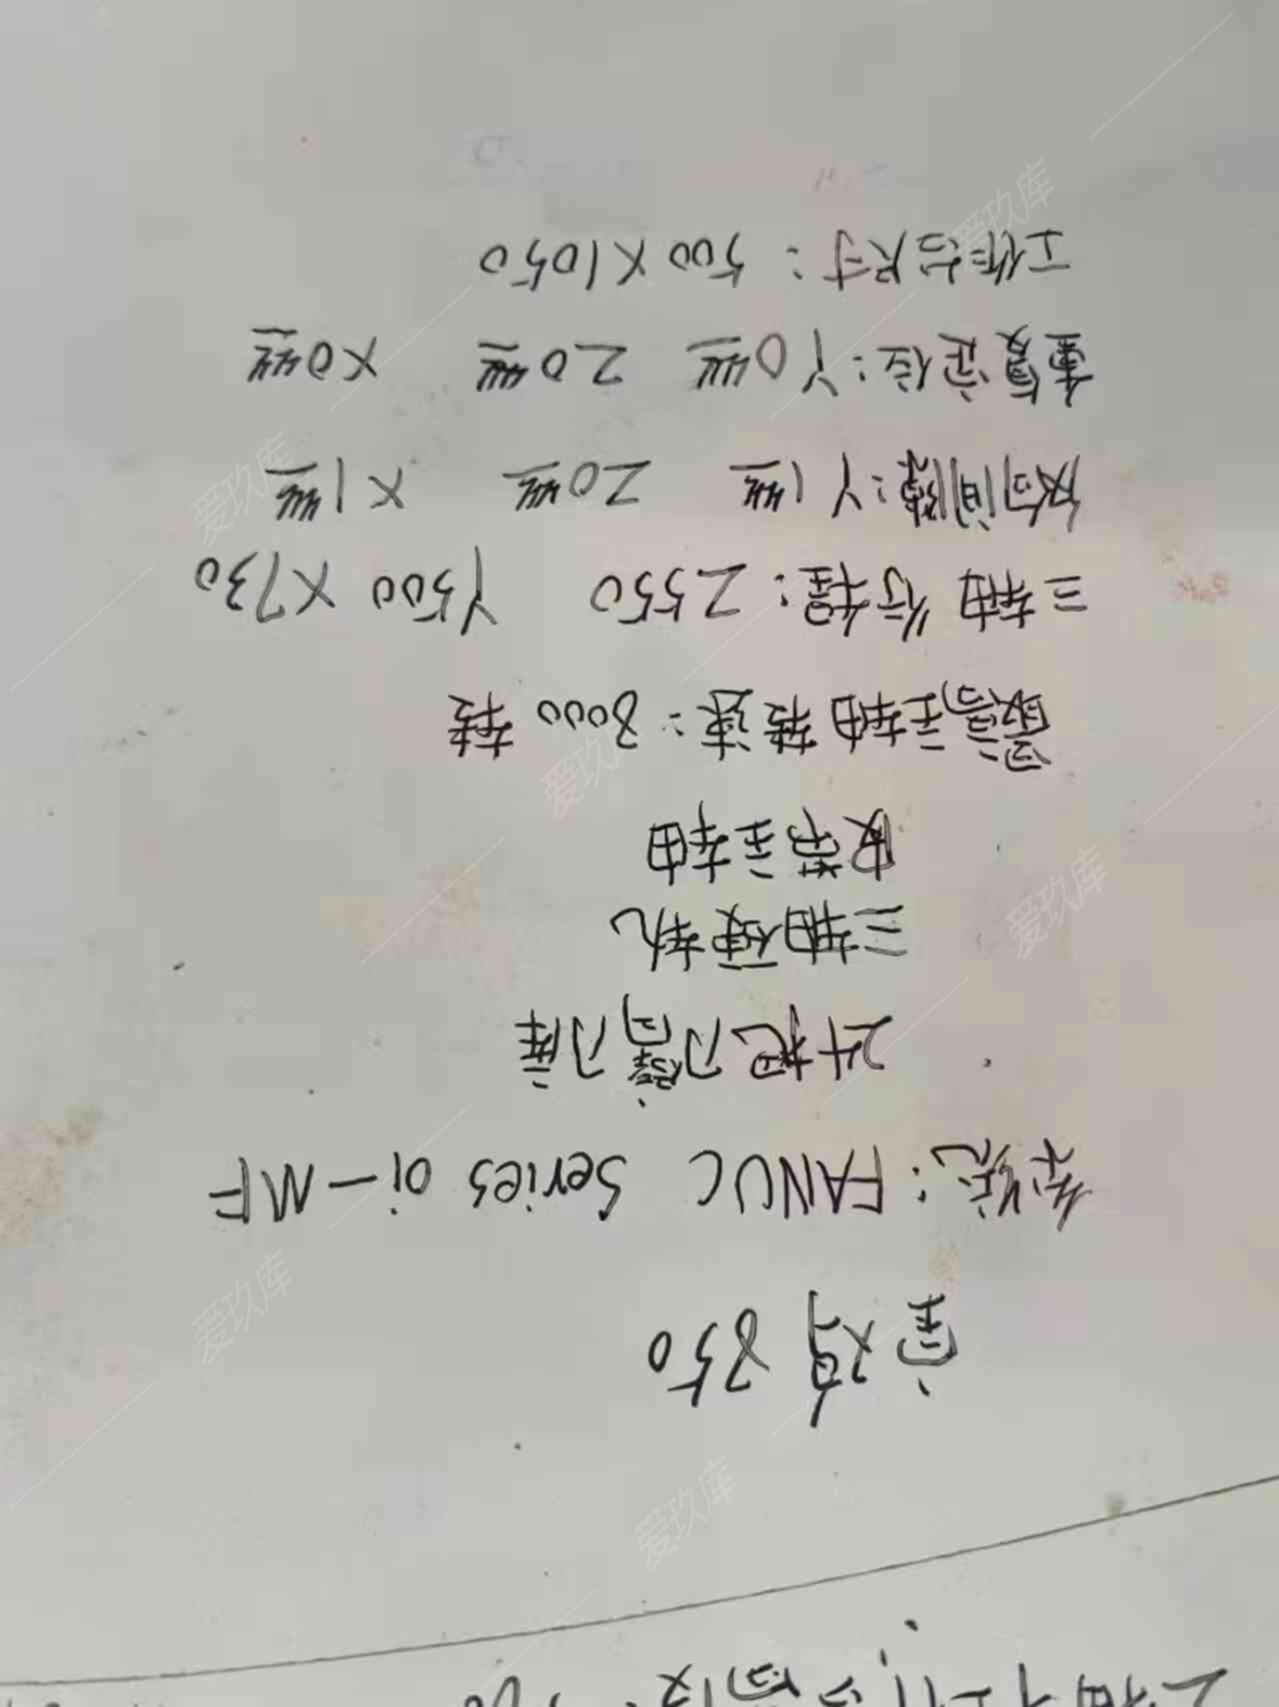 宝鸡 850
系统：FANUC Series oi-MF
24把刀臂刀库
三轴硬轨
皮带主轴
最高主轴转速：8000 转
三轴行程：Z550 Y500 X730
反向间隙：Y1丝 Z0丝 X1丝
重复定位：Y0丝 Z0丝 X0丝
工作台尺寸：500X1050
爱玖库
爱玖库
爱玖库
爱玖库
爱玖库
爱玖库